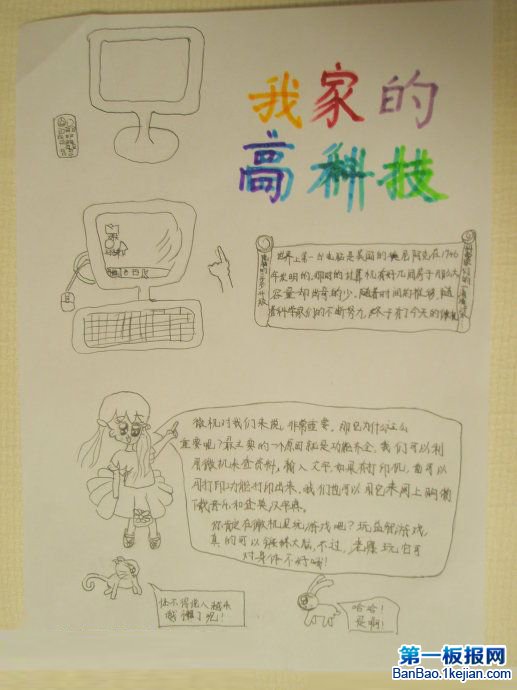 我家的
高科技
世界上第一台电脑是美国的 尼阿克在1946
年发明的,那时的计算机有好几间房子那么大
容量却出奇的少。随着时间的推移,随
着科学家们的不断努力,终于有了今天的
微机对我们来说,非常重要,那它为什么这么
重要呢?最主要的一个原因就是功能齐全,我们可以利
用微机来查资料,输入文字,如果有打印机,首可以
用打印功能打印出来,我们也可以用它来网上购物
下载音乐和查英汉字典。
你肯定在微机里玩游戏吧?玩益智游戏,
真的可以锻炼大脑,不过,老玩它可
对身体不好哦!
怪不得说人越来
越懒了呢!
哈哈!
是啊!
第一板报网
BanBao.1kejian.com